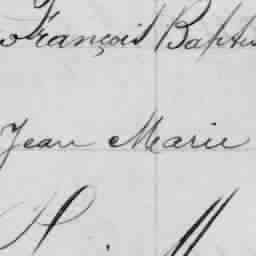 François Bapti
Jean Marie